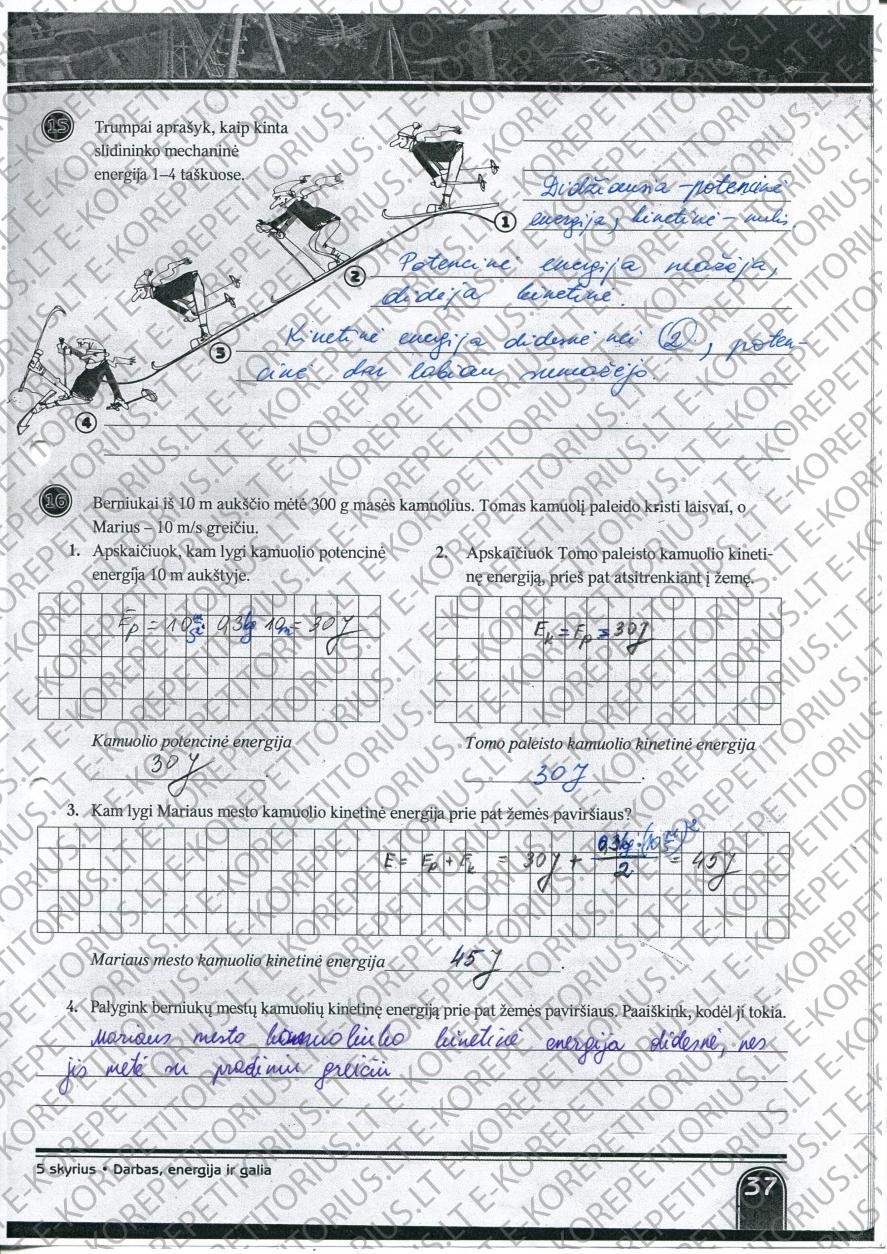 15 Trumpai aprašyk, kaip kinta
slidininko mechaninė
energija 1–4 taškuose.
Didžiausia potencinė
1 energija, kinetinė – nulis
Potencinė energija mažėja,
2 didėja kinetinė.
Kinetinė energija didesnė nei (2), poten-
3 cinė dar labiau sumažėjo.
4
16 Berniukai iš 10 m aukščio mėtė 300 g masės kamuolius. Tomas kamuolį paleido kristi laisvai, o
Marius – 10 m/s greičiu.
1. Apskaičiuok, kam lygi kamuolio potencinė
energija 10 m aukštyje.
Ep = 10 m/s² · 0,3kg 10m = 30J
Kamuolio potencinė energija
30J.
2. Apskaičiuok Tomo paleisto kamuolio kineti-
nę energiją, prieš pat atsitrenkiant į žemę.
Ek = Ep = 30J
Tomo paleisto kamuolio kinetinė energija
30J.
3. Kam lygi Mariaus mesto kamuolio kinetinė energija prie pat žemės paviršiaus?
E = Ep + Ek = 30J + 0,3kg·(10 m/s)²/2 = 45J
Mariaus mesto kamuolio kinetinė energija 45J.
4. Palygink berniukų mestų kamuolių kinetinę energiją prie pat žemės paviršiaus. Paaiškink, kodėl ji tokia.
Mariaus mesto kamuoliuko kinetinė energija didesnė, nes
jis metė su pradiniu greičiu
5 skyrius • Darbas, energija ir galia
37
E-KOREPETITORIUS.LT